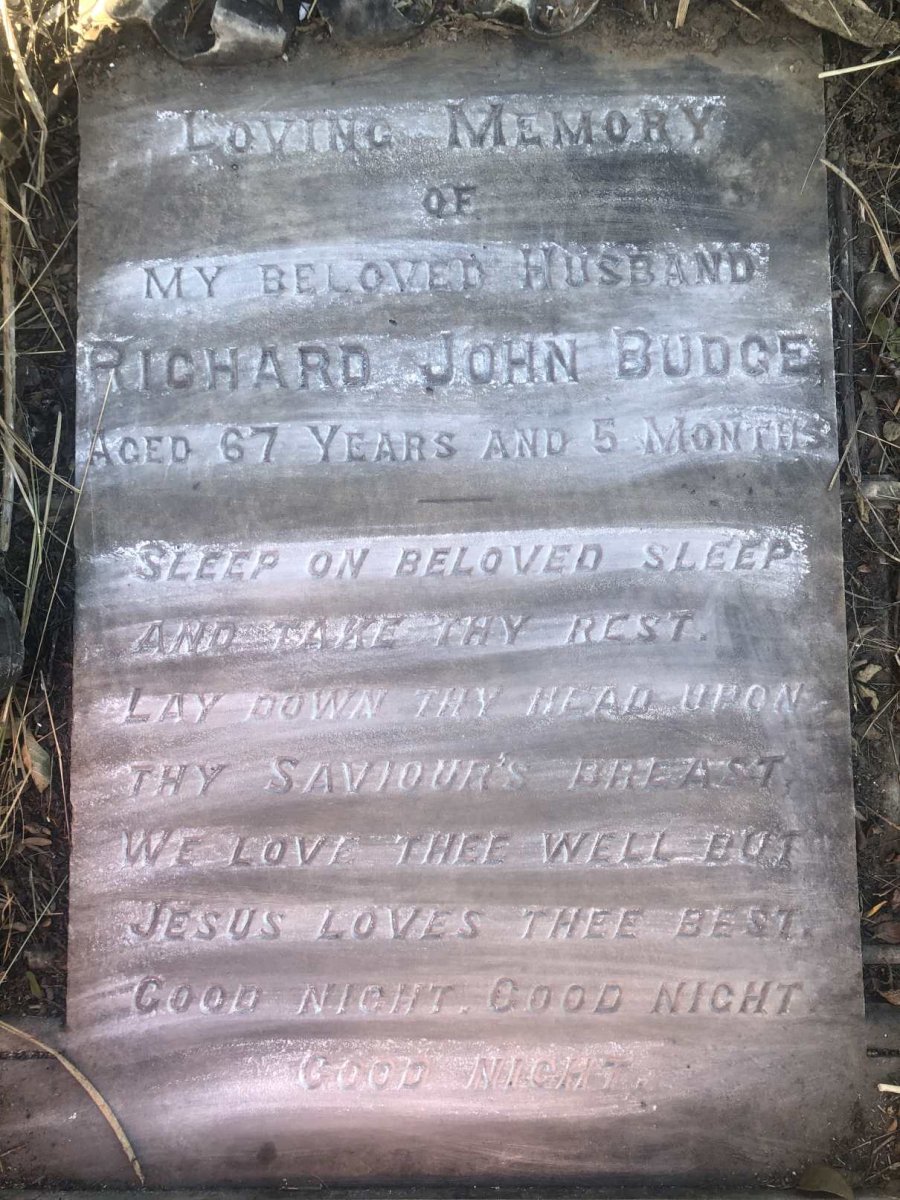 LOVING MEMORY
OF
MY BELOVED HUSBAND
RICHARD JOHN BUDGE
AGED 67 YEARS AND 5 MONTHS
SLEEP ON BELOVED SLEEP
AND TAKE THY REST.
LAY DOWN THY HEAD UPON
THY SAVIOUR'S BREAST,
WE LOVE THEE WELL BUT
JESUS LOVES THEE BEST.
GOOD NIGHT. GOOD NIGHT.
GOOD NIGHT.